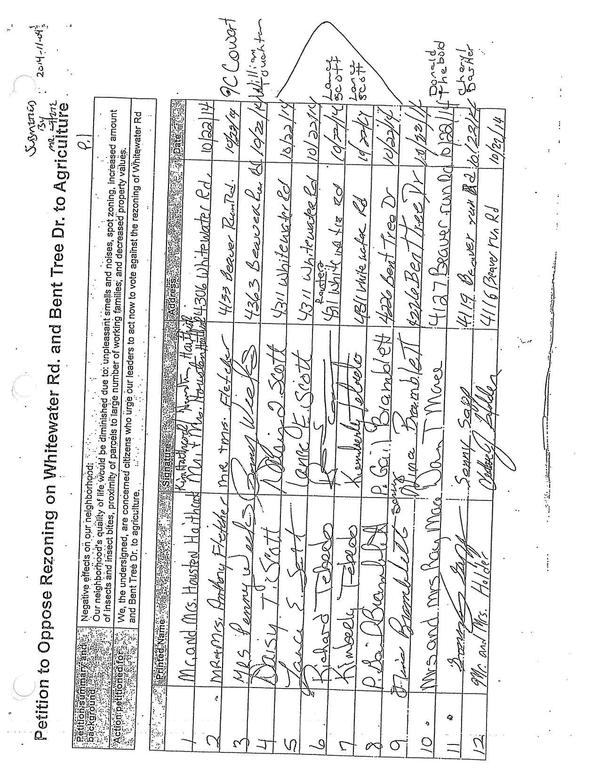 Signatures
By
2014-11-04
Petition to Oppose Rezoning on Whitewater Rd. and Bent Tree Dr. to Agriculture
P.1
Petition summary and background
Negative effects on our neighborhood:
Our neighborhood's quality of life would be diminished due to: unpleasant smells and noises, spot zoning, increased amount
of insects and insect bites, proximity of parcels to large number of working families, and decreased property values.
Action petitioned for
We, the undersigned, are concerned citizens who urge our leaders to act now to vote against the rezoning of Whitewater Rd
and Bent Tree Dr. to agriculture.
Printed Name Signature Address Date
1 Mr. and Mrs. Houston Haithcock 4306 Whitewater Rd. 10/22/14
2 MR + Mrs. Anthony Fletcher Mr + mrs. Fletcher 4155 Beaver Run Rd. 10/22/14 JC Cowart
3 MRS Penny Weeks Penny Weeks 4263 Beaver Run Rd 10/22/14 William
4 Daisy T. Scott 4311 Whitewater Rd 10/22/14
5 Lance E. Scott Lance E. Scott 4311 Whitewater Rd 10/22/14
6 Richard Toledo Whitewater Rd 10/22/14 Lance Scott
7 Kimberly Toledo Kimberly Toledo 4311 Whitewater Rd 10/22/14 Lance Scott
8 P. Gail Bramblett P. Gail Bramblett 4226 Bent Tree Dr 10/22/14
9 Nina Bramblett Nina Bramblett 4226 Bent Tree Dr 10/22/14
10 Mrs and mrs Ray Mace 4127 Beaver run Rd 10/22/14 Donald Thebold
11 4119 Beaver run Rd 10/22/14 Cheryl Dasher
12 Mr. and Mrs. Holder 4116 Beaver run Rd 10/22/14